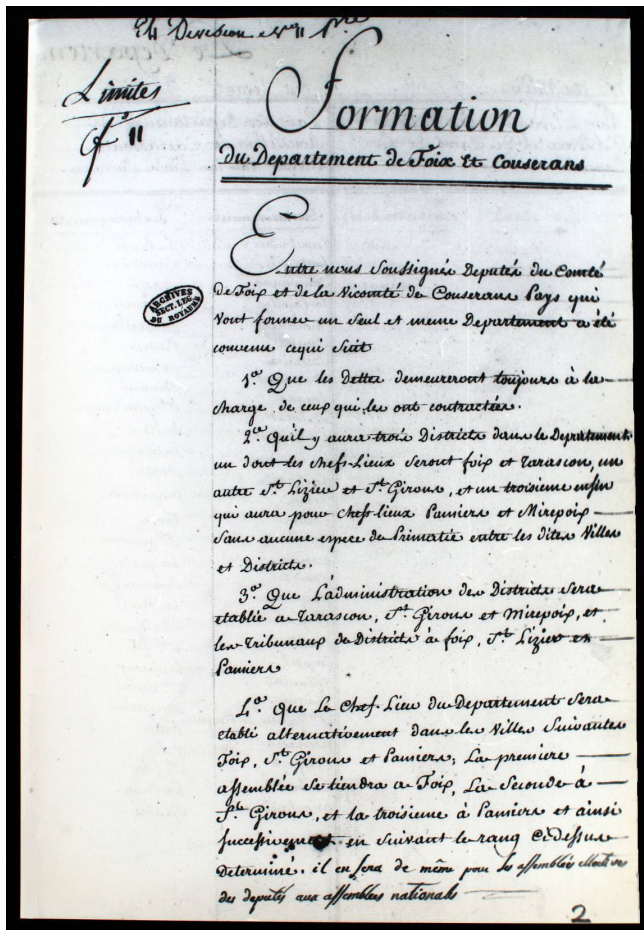 Division n.º 11
Limites
fº 11
Formation
du Departement de Foix et Couserans
ARCHIVES
SECT. LEG.
DU ROYAUME
Entre nous Soussignés Deputés du Comté
de Foix et de la Vicomté de Couserans Pays qui
vont former un Seul et meme Departement a été
convenu cequi Suit
1º Que les dettes demeureront toujours à la
charge de ceux qui les ont contractées.
2º Quil y aura trois Districts dans le Departement
un dont les chefs-Lieux Seront foix et tarascon, un
autre St. Lizier et St. Girons, et un troisieme enfin
qui aura pour chefs lieux Pamiers et Mirepoix
Sans aucune espece de Primatie entre les dites Villes
et Districts.
3º Que L'administration des Districts Sera
etablie a tarascon, St. Girons et Mirepoix, et
les tribunaux de Districts à foix, St. Lizier et
Pamiers
4º que Le Chef-Lieu du Departement Sera
etabli alternativement dans les Villes Suivantes
Foix, St. Girons et Pamiers; La premiere
assemblée Se tiendra a Foix, La Seconde à
St. Girons, et la troisieme à Pamiers et ainsi
successivement en Suivant le rang cidessus
Determiné. il en sera de même pour les assemblées electives
des deputés aux assemblées nationales
2